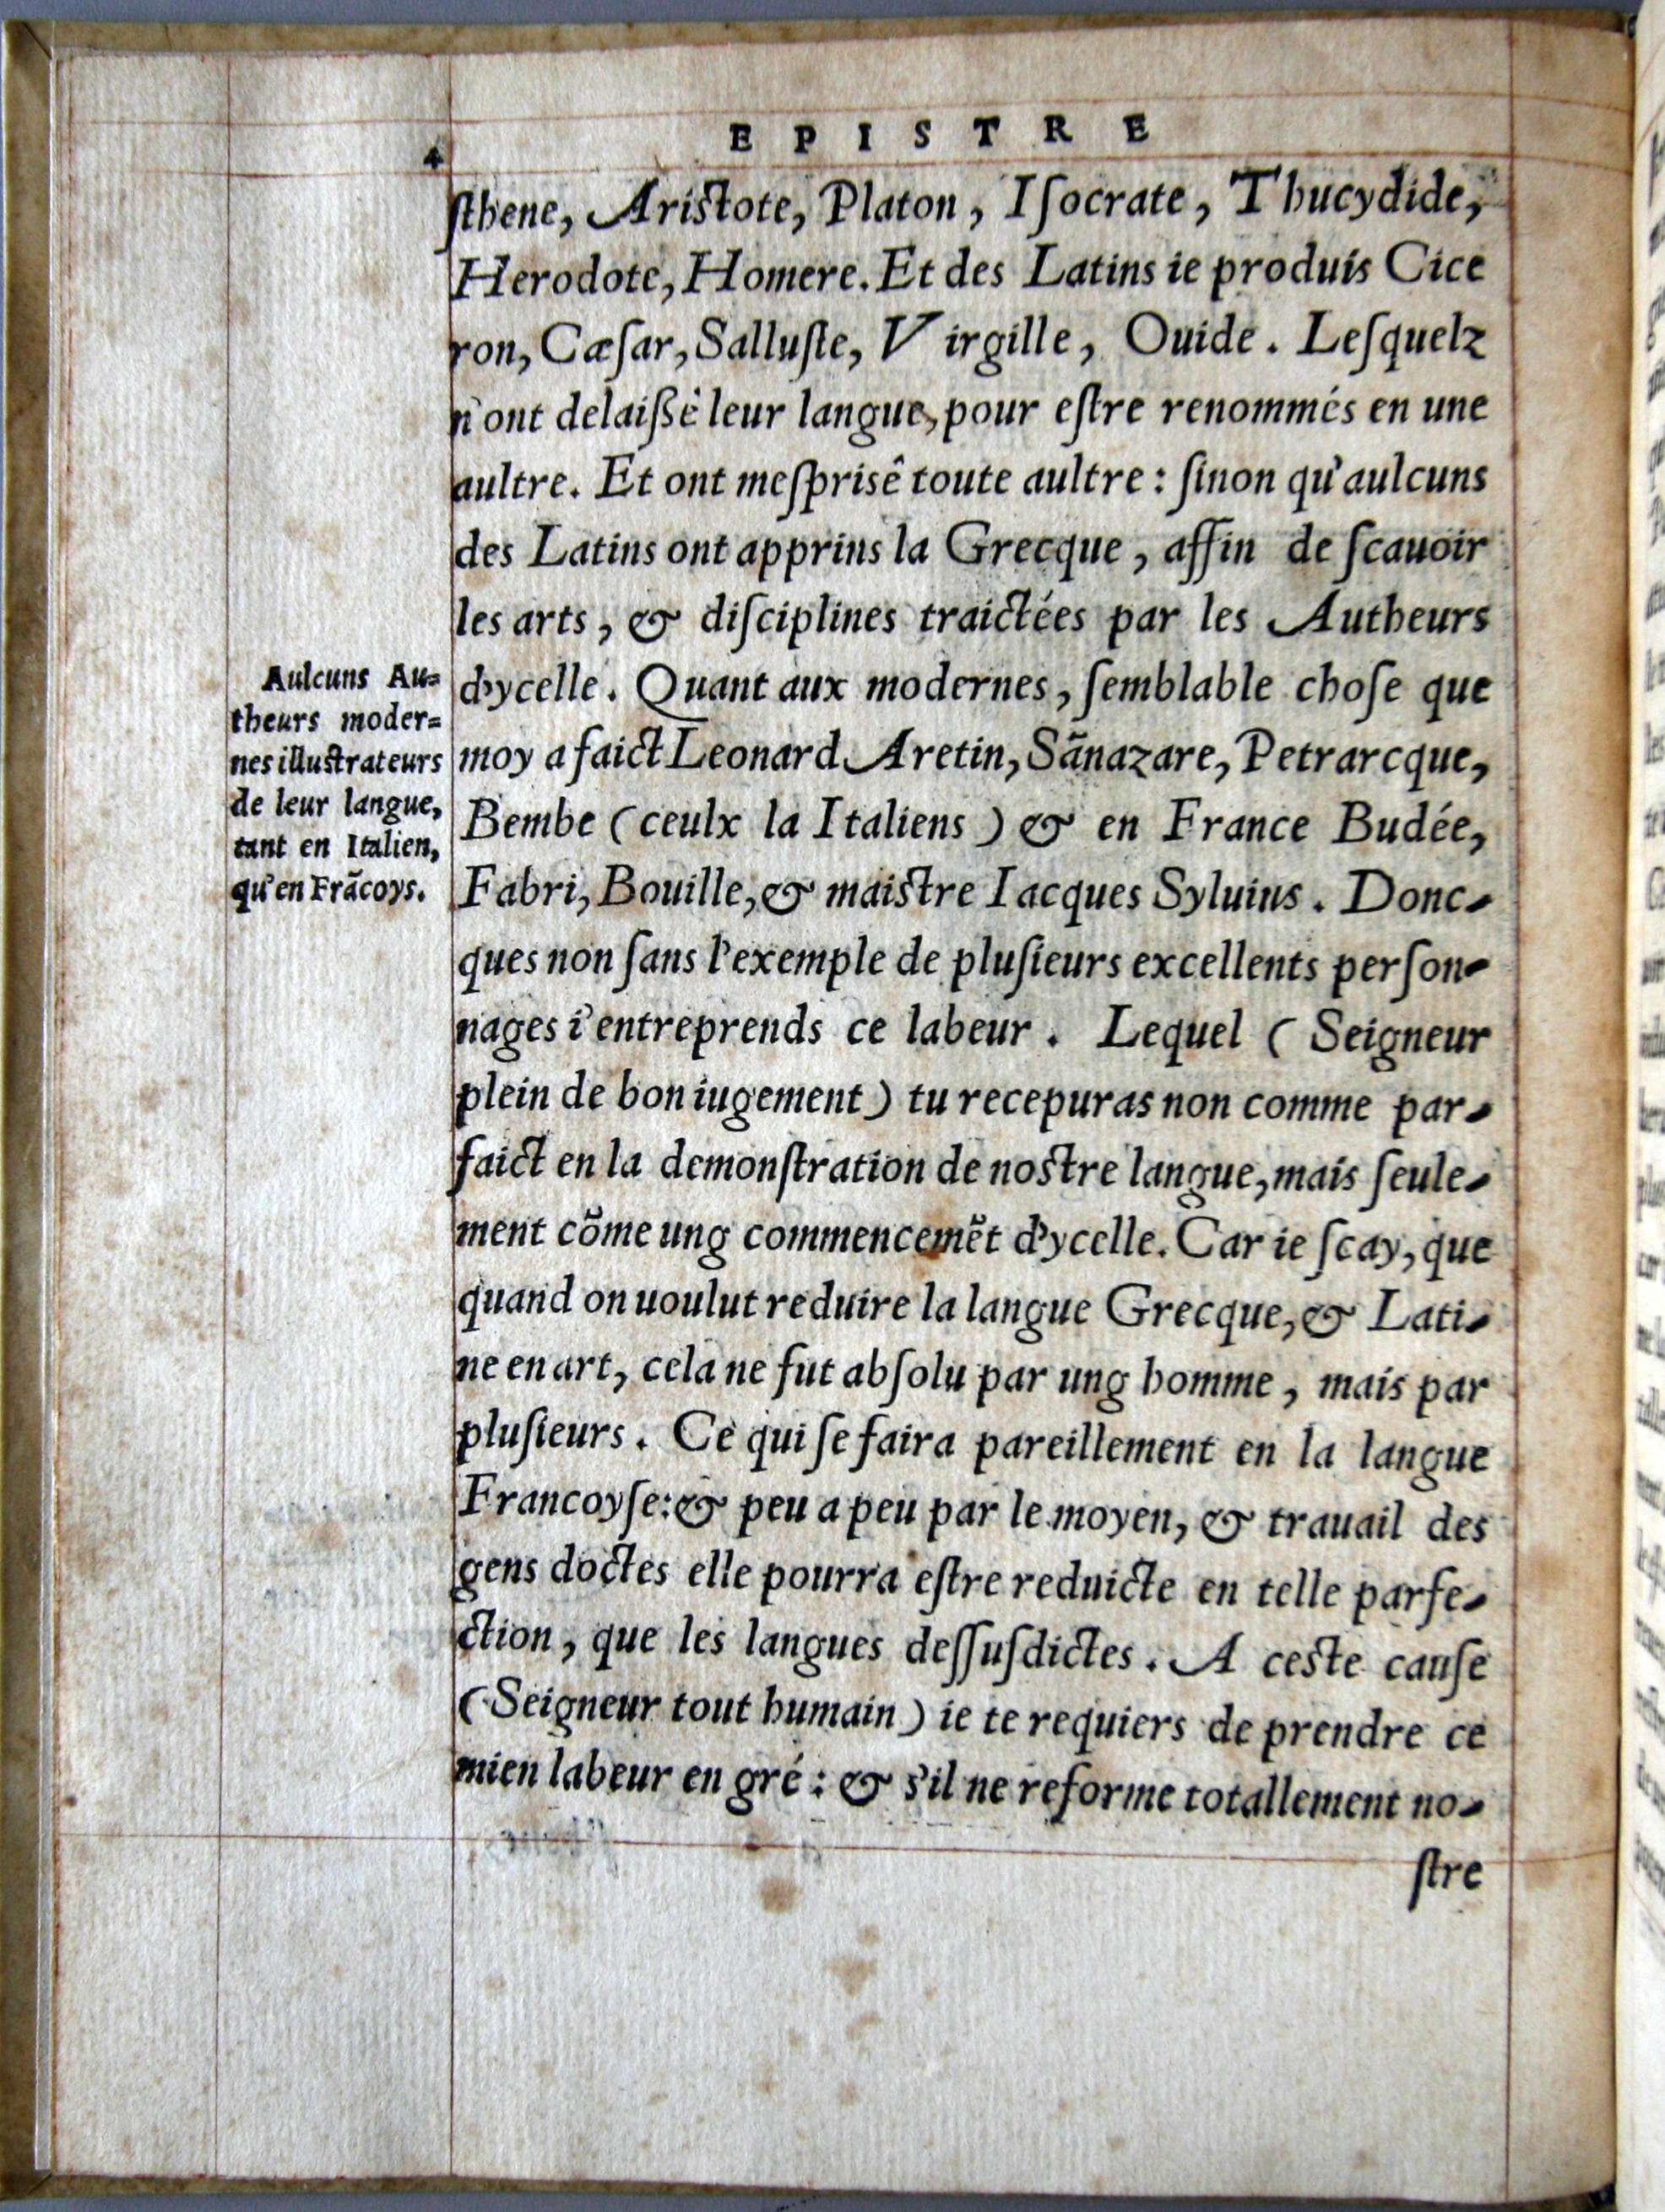 4
EPISTRE
ſthene, Ariſtote, Platon, Iſocrate, Thucydide,
Herodote, Homere. Et des Latins ie produis Cice
ron, Cæſar, Salluſte, Virgille, Ouide. Leſquelz
n'ont delaiſſé leur langue, pour eſtre renommés en une
aultre. Et ont meſprisê toute aultre: ſinon qu'aulcuns
des Latins ont apprins la Grecque, affin de ſcauoir
les arts, & diſciplines traictées par les Autheurs
d'ycelle. Quant aux modernes, ſemblable choſe que
moy a faict Leonard Aretin, Sãnazare, Petrarcque,
Bembe (ceulx la Italiens) & en France Budée,
Fabri, Bouille, & maiſtre Iacques Syluius. Donc-
ques non ſans l'exemple de pluſieurs excellents perſon-
nages i'entreprends ce labeur. Lequel (Seigneur
plein de bon iugement) tu recepuras non comme par-
faict en la demonſtration de noſtre langue, mais ſeule-
ment cõme ung commencemẽt d'ycelle. Car ie ſcay, que
quand on uoulut reduire la langue Grecque, & Lati-
ne en art, cela ne fut abſolu par ung homme, mais par
pluſieurs. Ce qui ſe faira pareillement en la langue
Francoyſe: & peu a peu par le moyen, & trauail des
gens doctes elle pourra eſtre reduicte en telle parfe-
ction, que les langues deſſuſdictes. A ceſte cauſe
(Seigneur tout humain) ie te requiers de prendre ce
mien labeur en gré: & s'il ne reforme totallement no-
ſtre
Aulcuns Au=
theurs moder=
nes illuſtrateurs
de leur langue,
tant en Italien,
qu'en Frãcoys.